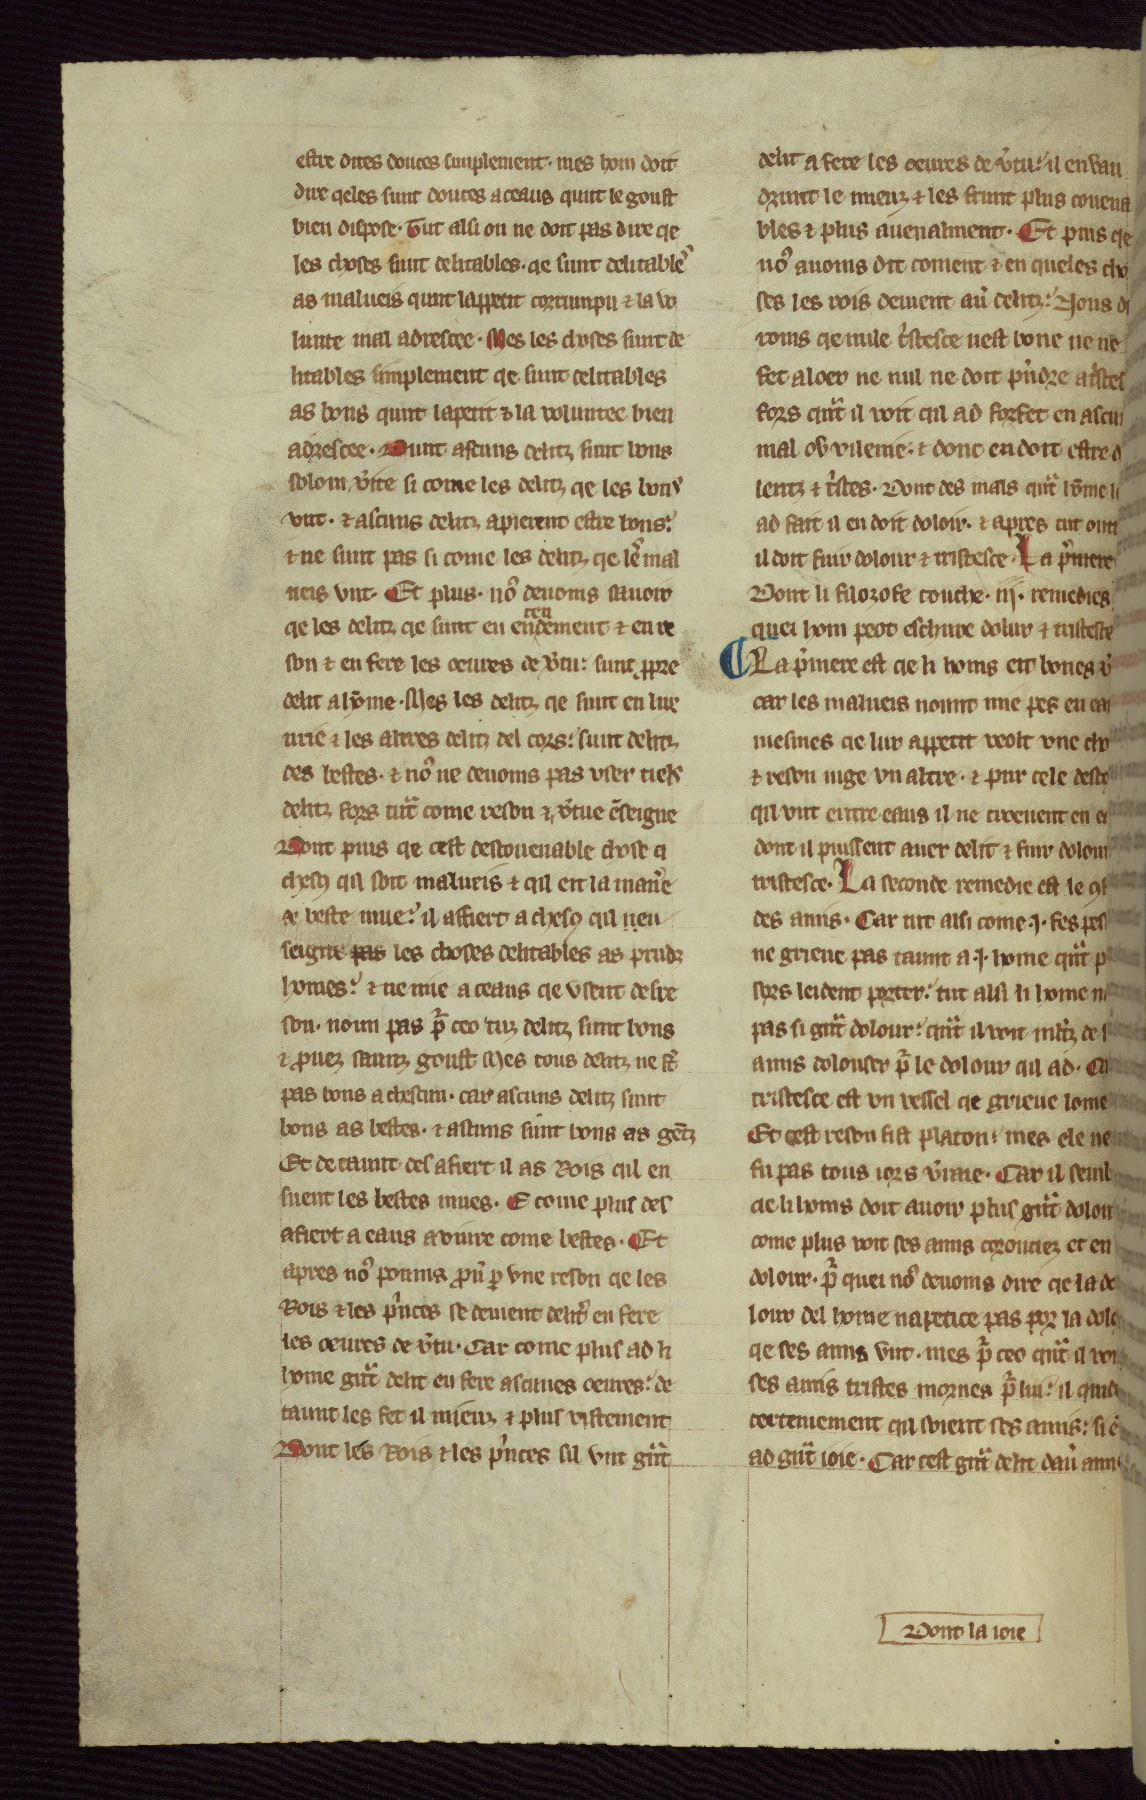 estre dites douces simplement· mes hom doit
dire qeles sunt douces a ceaus qunt le goust
bien dispose· Tut alsi on ne doit pas dire qe
les choses sunt delitables· qe sunt delitables
as malueis qunt lappetit corrumpu ⁊ la vo
lunte mal adrescee· Mes les choses sunt de
litables simplement qe sunt delitables
as bons qunt lapetit ⁊ la voluntee bien
adrescee· Dunt ascuns delitz sunt bons
solom v̾ite si come les delitz qe les bons
vnt· ⁊ ascuns delitz apierent estre bons:
⁊ ne sunt pas si come les delitz qe les mal
ueis vnt· Et plus· no᷒ deuoms sauoir
qe les delitz qe sunt en entendement ⁊ en re
son ⁊ en fere les oeures de v̾tu: sunt ꝓpre
delit a lome· Mes les delitz qe sunt en lux
urie ⁊ les altres delitz del cors: sunt delitz
des bestes· ⁊ no᷒ ne deuoms pas vser tiels
delitz fors tant come reson ⁊ v̾tue ēseigne
Dont puis qe cest descouenable chose a
chescun qil soit malueis ⁊ qil eit la man̾e
de beste mue: il affiert a chescun qil nen
seigne pas les choses delitables as prudz
homes: ⁊ ne mie a ceaus qe vsent de lre
son· noun pas pͬ ceo tuz delitz sunt bons
⁊ ꝓuez sauntz goust Mes tous delitz ne st̄
pas bons a chescun· car ascuns delitz sunt
bons as bestes· ⁊ ascuns sunt bons as gētz
Et de taunt des afiert il as Rois qil en
suent les bestes mues· E come plus des
afiert a eaus a viure come bestes· Et
apres no᷒ poums ꝓu̾ ꝑ vne reson qe les
Rois ⁊ les pͥnces se deiuent delit̾ en fere
les oeures de v̾tu· Car come plus ad li
home gͣnt delit en fere ascunes oeures: de
taunt les fet il mieuz ⁊ plus vistement
Dont les Rois ⁊ les pͥnces sil vnt gͣnt
delit a fere les oeures de v̾tu: il en vau
drunt le mieuz ⁊ les frunt plus couena
bles ⁊ plus auenalment· Et puis qe
no᷒ auoms dit coment ⁊ en queles cho
ses les rois deiuent au̾ delitz: Nous di
roms qe nule tͥstesce nest bone ne ne
fet a loer ne nul ne doit pͥndre a tͥstes
fors qͣnt il voit qil ad forfet en ascun
mal ou vilenie: ⁊ dont en doit estre d
lentz ⁊ tͥstes· Dont des mals qͣnt lome l
ad fait il en doit doloir· ⁊ apres tut out
il doit fuir dolour ⁊ tristesce· La pͥmere
Dont li filozofe touche· iij· remedies
quei hom peot eschure dolur ⁊ tristesce
La pͥmere est qe li homs eit bones v̾
car les malueis nount mie pes en ca
mesmes qe lur appetit veolt vne cho
⁊ reson iuge vn altre· ⁊ pur cele desco
qil vnt entre eaus il ne treouent en e
dont il puissent auer delit ⁊ fuir dolour
tristesce· La seconde remedie est le gs
des amis· Car tut alsi come ·j· fes pes
ne grieue pas taunt a ·j· home qͣnt p
sors leident porter: tut alsi li home n
pas si gͣnt dolour: qͣnt il voit mltz de s
amis dolouser pͬ le dolour qil ad· Ca
tristesce est vn vessel qe grieue lome
Et cest reson fist platon: mes ele ne
fu pas tous iors v̾raie· Car il semb
qe li homs doit auoir plus gͣnt dolour
come plus voit ses amis corouciez et en
dolour· pͬ quei no᷒ deuoms dire qe la do
lour del home napetice pas por la dolo
qe ses amis vnt· mes pͬ ceo qͣnt il voi
ses amis tristes mornes pͬ lui: il quid
certeinement qil soient ses amis: si ē
ad gͣnt ioie· Car cest gͣnt delit dau̾ ami
Dont la ioie